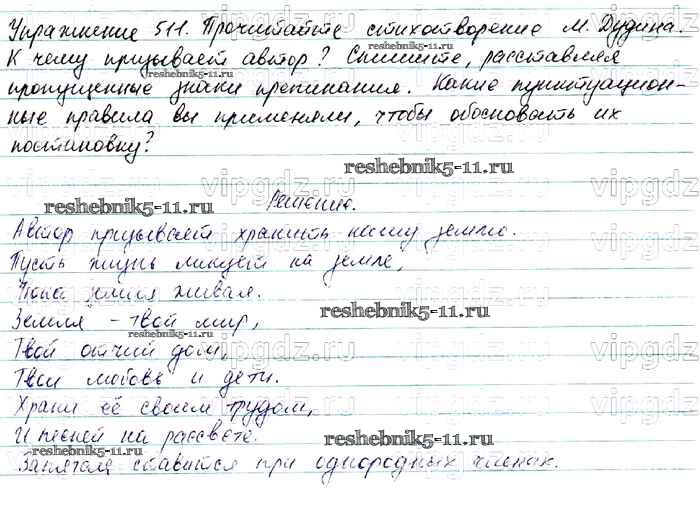 Упражнение 511. Прочитайте стихотворение М. Дудина.
К чему призывает автор? Спишите, расставляя
пропущенные знаки препинания. Какие пунктуацион-
ные правила вы применяли, чтобы обосновать их
постановку?
Решение.
Автор призывает хранить нашу землю.
Пусть жизнь ликует на земле,
Пока земля живая.
Земля - твой мир,
Твой отчий дом,
Твои любовь и дети.
Храни её своим трудом,
И песней на рассвете.
Запятая ставится при однородных членах.
reshebnik5-11.ru
reshebnik5-11.ru
reshebnik5-11.ru
reshebnik5-11.ru
reshebnik5-11.ru
reshebnik5-11.ru
reshebnik5-11.ru
reshebnik5-11.ru
vipgdz.ru